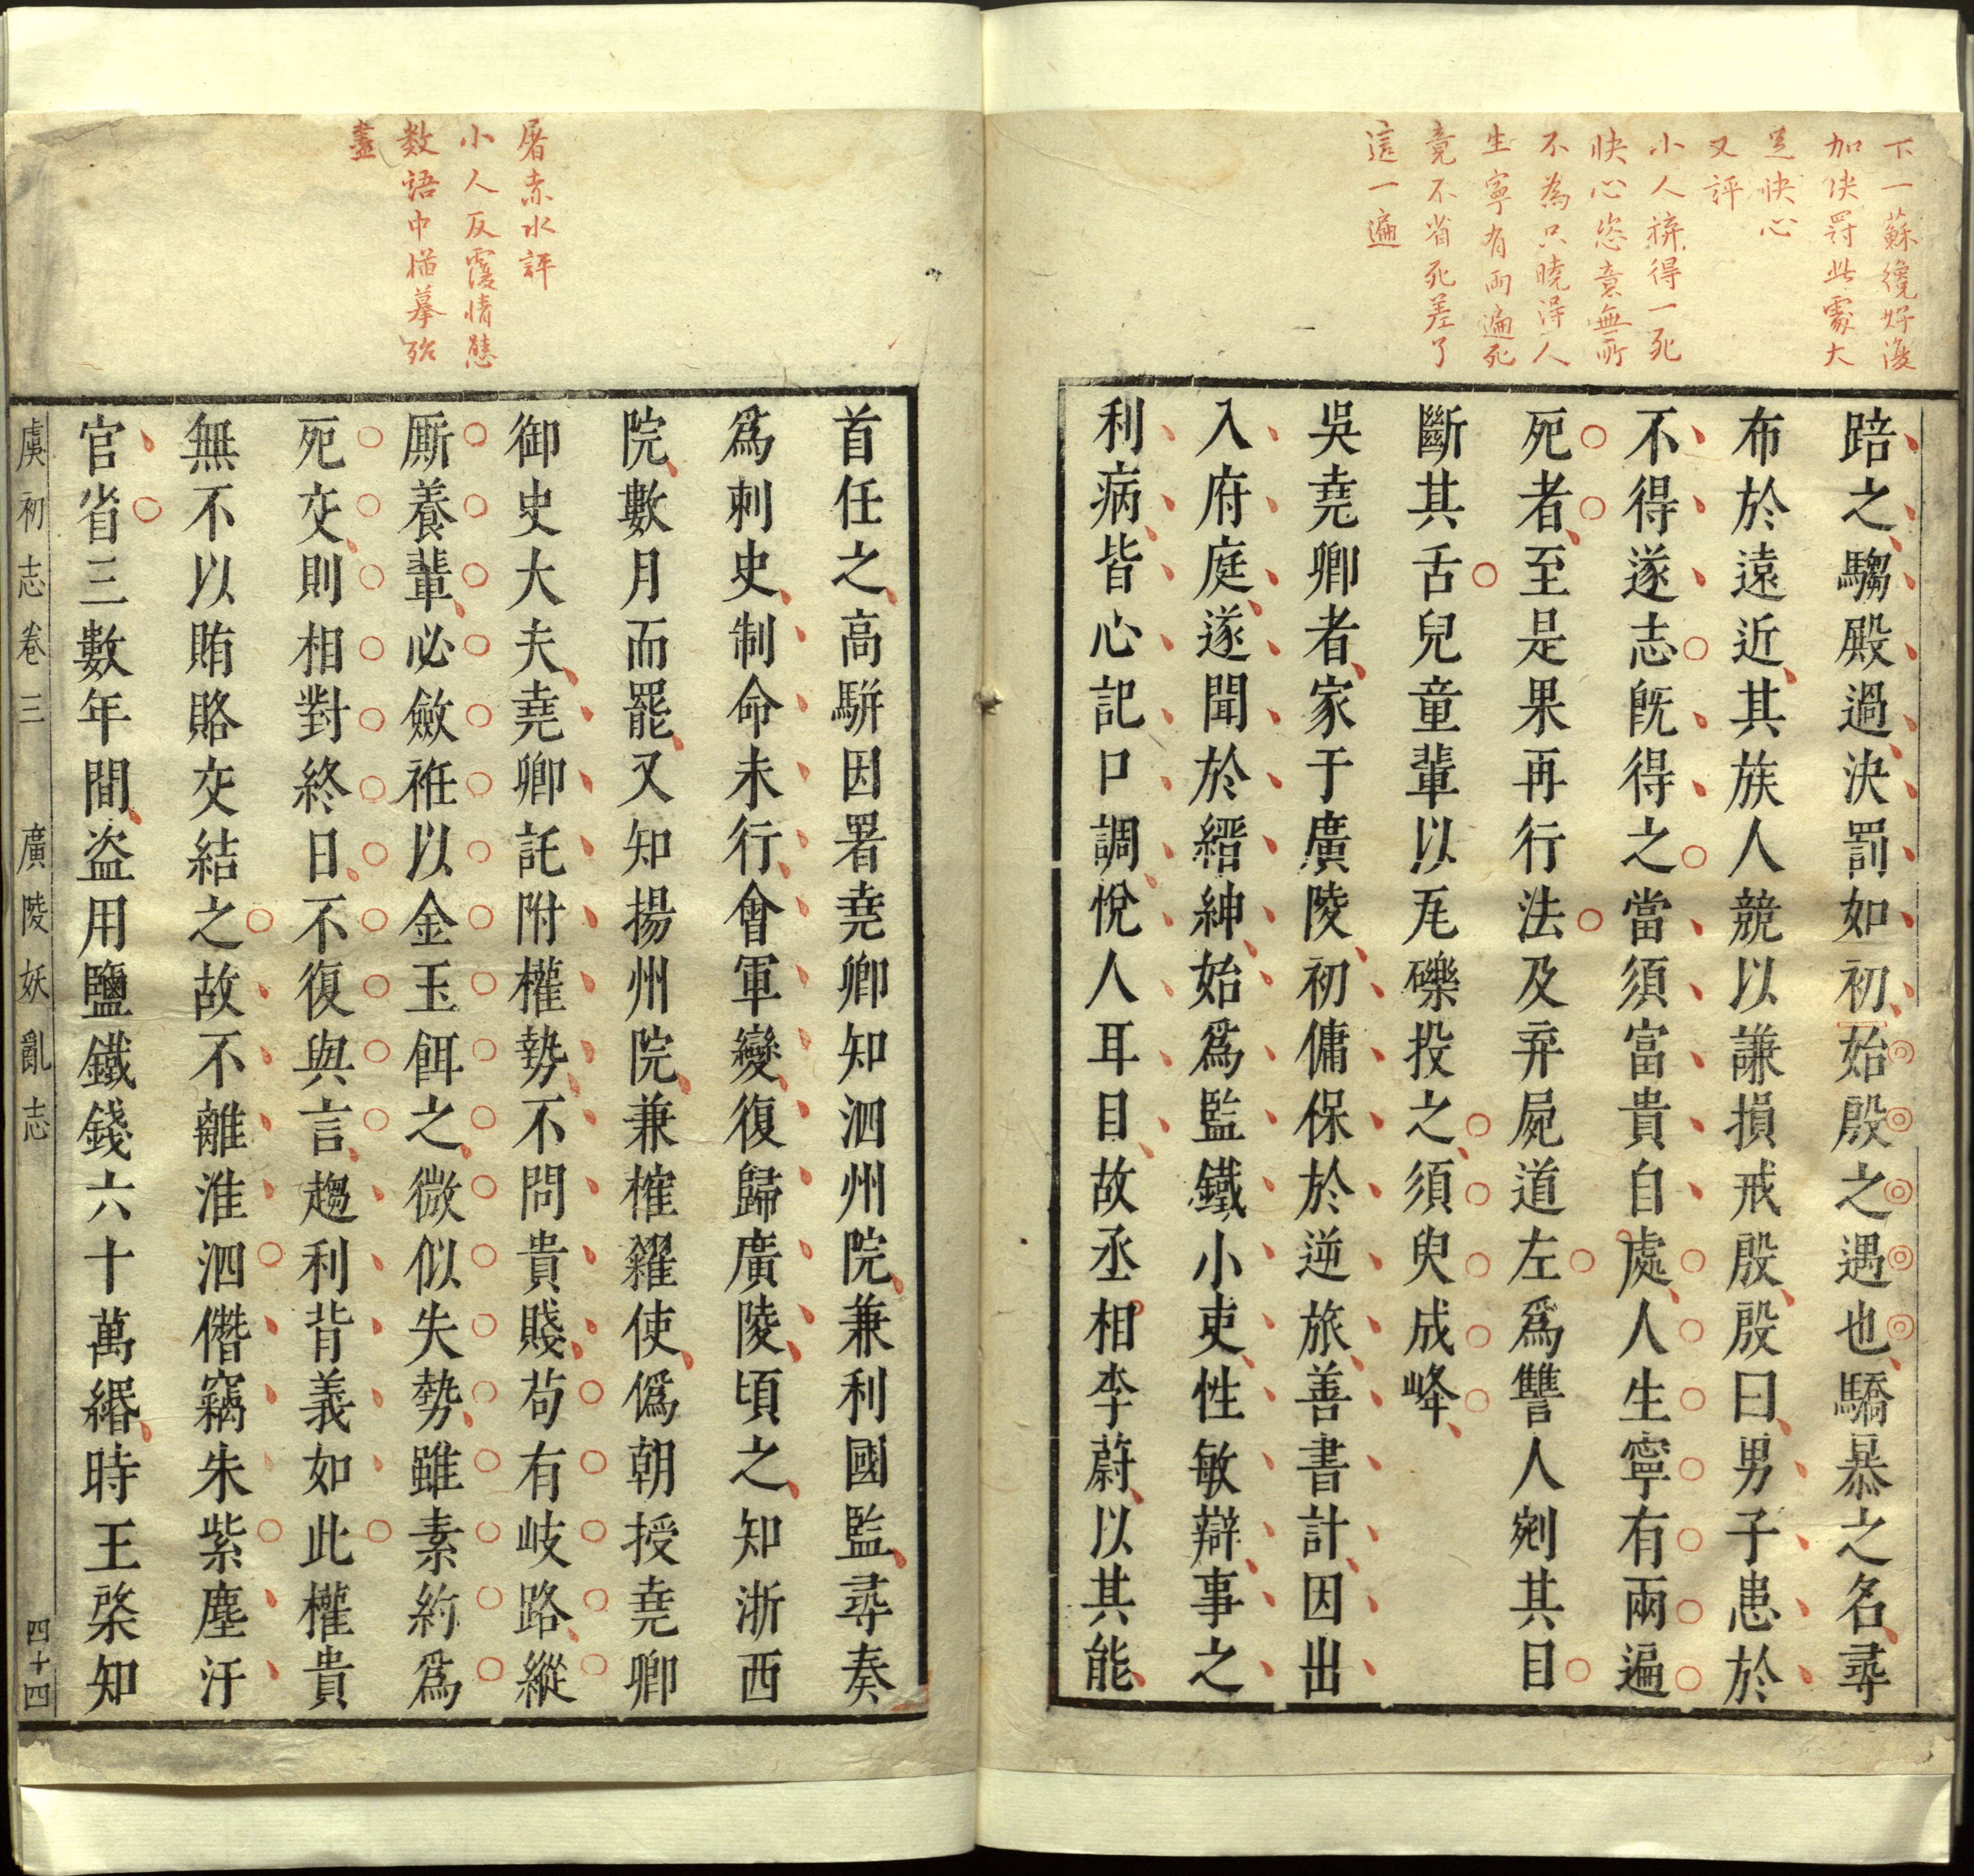 下一蘇纔好復
加佚罸此處大
是快心
又評
小人拚得一死
快心恣意無所
不為只曉得人
生寧有兩遍死
竟不省死差了
這一遍
踣之騶殿過決罰如初始殷之遇也驕暴之名尋
布於遠近其族人競以謙損戒殷殷曰男子患於
不得遂志旣得之當須富貴自處人生寧有兩遍
死者至是果再行法及弃屍道左爲讐人剜其目
斷其舌兒童輩以瓦礫投之須臾成峰
吳堯卿者家于廣陵初傭保於逆旅善書計因出
入府庭遂聞於縉紳始爲監鐵小吏性敏辯事之
利病皆心記口調悅人耳目故丞相李蔚以其能
屠赤水評
小人反覆情態
数語中描摹殆
盡
首任之高駢因署堯卿知泗州院兼利國監尋奏
爲刺史制命未行會軍變復歸廣陵頃之知浙西
院數月而罷又知揚州院兼榷糴使僞朝授堯卿
御史大夫堯卿託附權勢不問貴賤苟有岐路縱
厮養輩必斂袵以金玉餌之微似失勢雖素約爲
死交則相對終日不復與言趨利背義如此權貴
無不以賄賂交結之故不離淮泗僭竊朱紫塵汙
官省三數年間盜用鹽鐵錢六十萬緡時王棨知
虞初志卷三 廣陵妖亂志 四十四